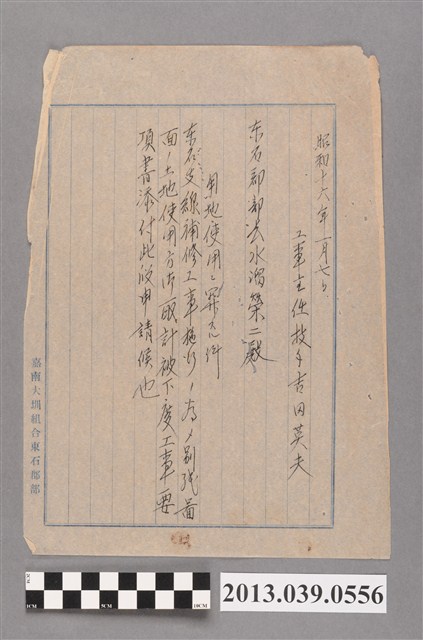 昭和十六年一月七日
工事主任技手吉田英夫
東石郡部長水溜榮二殿
用地使用ニ関スル件
東石支線補修工事施行ノ為メ別紙図
面ノ土地使用方御取計被下度工事要
項書添付此段申請候也
嘉南大圳組合東石郡部
1CM
5CM
10CM
2013.039.0556